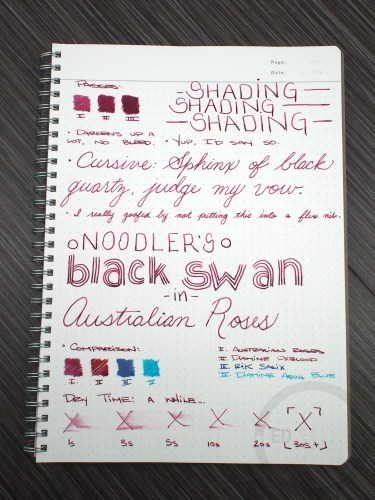 Page:
Date:
Passes:
-SHADING-
SHADING-
-SHADING-
I II III
• Darkens up a lot, no bleed.
• Yup, I'd say so.
• Cursive: Sphinx of black
quartz, judge my vow.
• I really goofed by not putting this into a flex nib.
NOODLER'S
black swan
-in-
Australian Roses
• Comparison:
I II III IIII
I. Australian Roses
II. Diamine Oxblood
III. R&K Salix
IIII. Diamine Aqua Blue
Dry Time: A while...
X X X X X [X]
1s 3s 5s 10s 20s [30s+]
ED